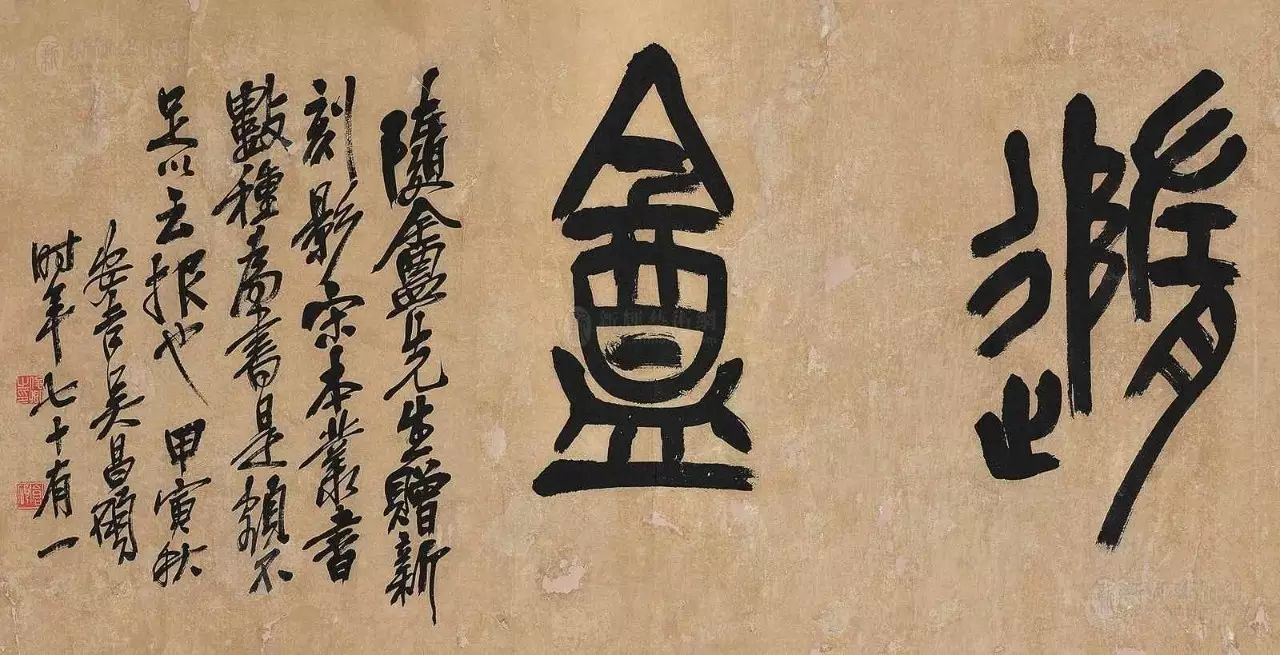 隨盦
隨盦先生贈新
刻影宋本叢書
數種為書是額不
足以云报也 甲寅秋
安吉吳昌碩
时年七十有一